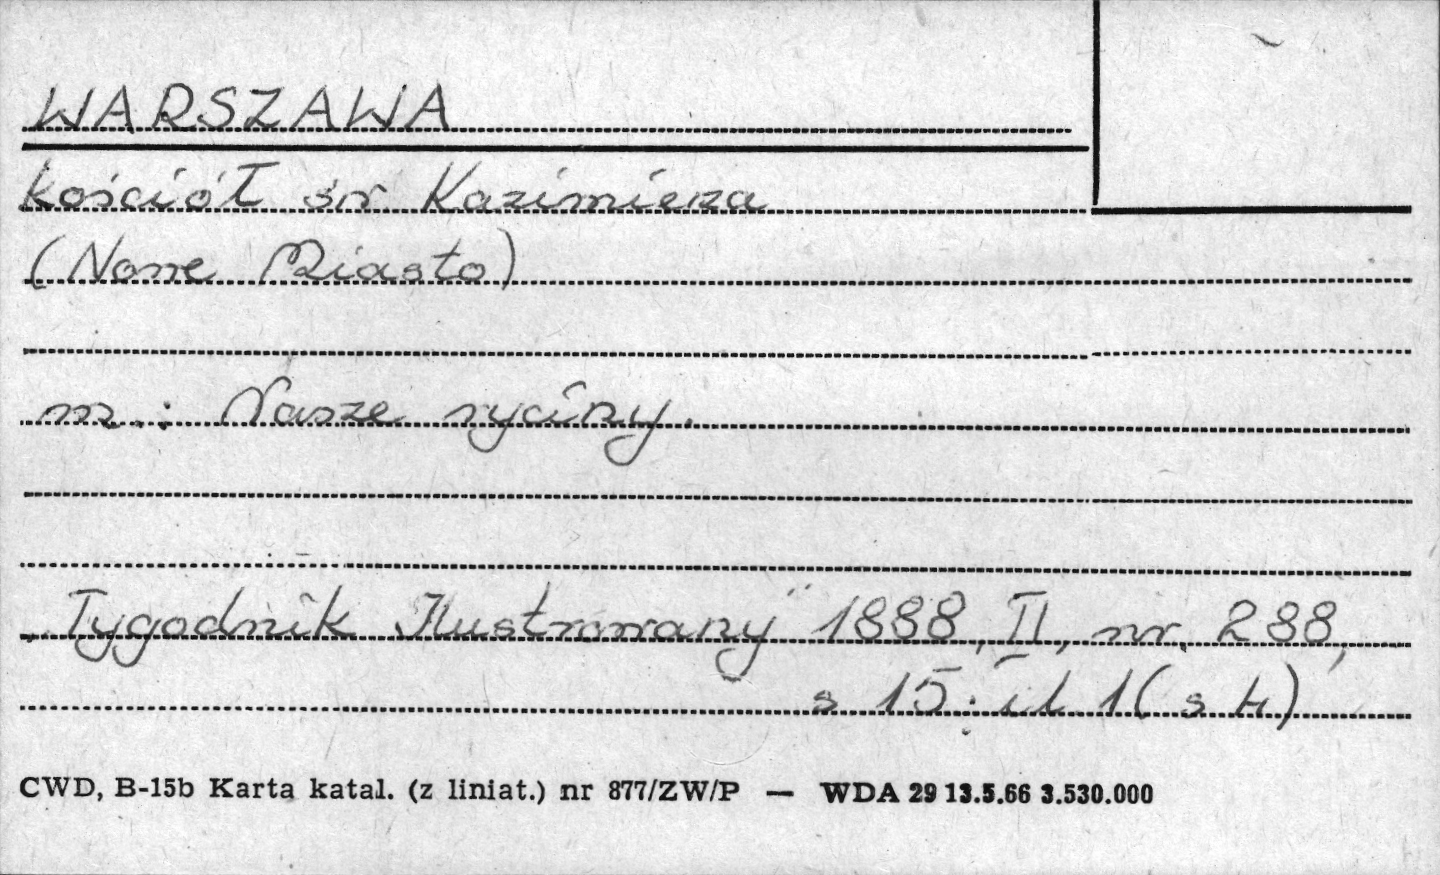 WARSZAWA
kościół św Kazimierza
(Nowe Miasto)
m.: Nasze ryciny.
"Tygodnik Ilustrowany" 1888, II, nr. 288,
s 15; il 1 (s 4)
CWD, B-15b Karta katal. (z liniat.) nr 877/ZW/P — WDA 29 13.5.66 3.530.000